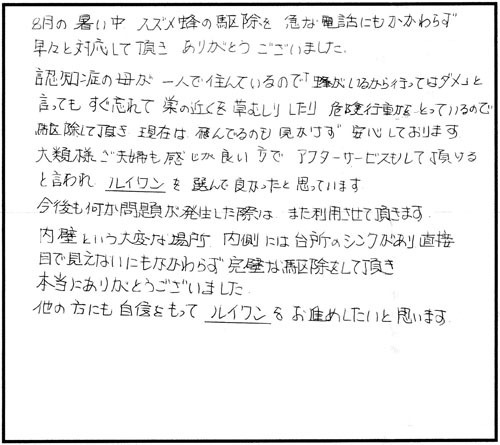 8月の暑い中 スズメ蜂の駆除を 急な電話にもかかわらず
早々と対応して頂き ありがとうございました.
認知症の母が 一人で住んでいるので「蜂がいるから行ってはダメ」と
言っても すぐ忘れて 巣の近くを草むしりしたり 危険行動をとっているので
駆除して頂き 現在は 飛んでるのも 見かけず 安心しております
大類様ご夫婦も 感じが良い方で アフターサービスもして頂ける
と言われ ルイワンを選んで良かったと思っています
今後も何か問題が発生した際は また利用させて頂きます.
内壁という大変な場所 内側には台所のシンクがあり直接
目で見えないにもかかわらず 完璧な駆除をして頂き
本当にありがとうございました
他の方にも 自信をもって ルイワンを お進めしたいと思います